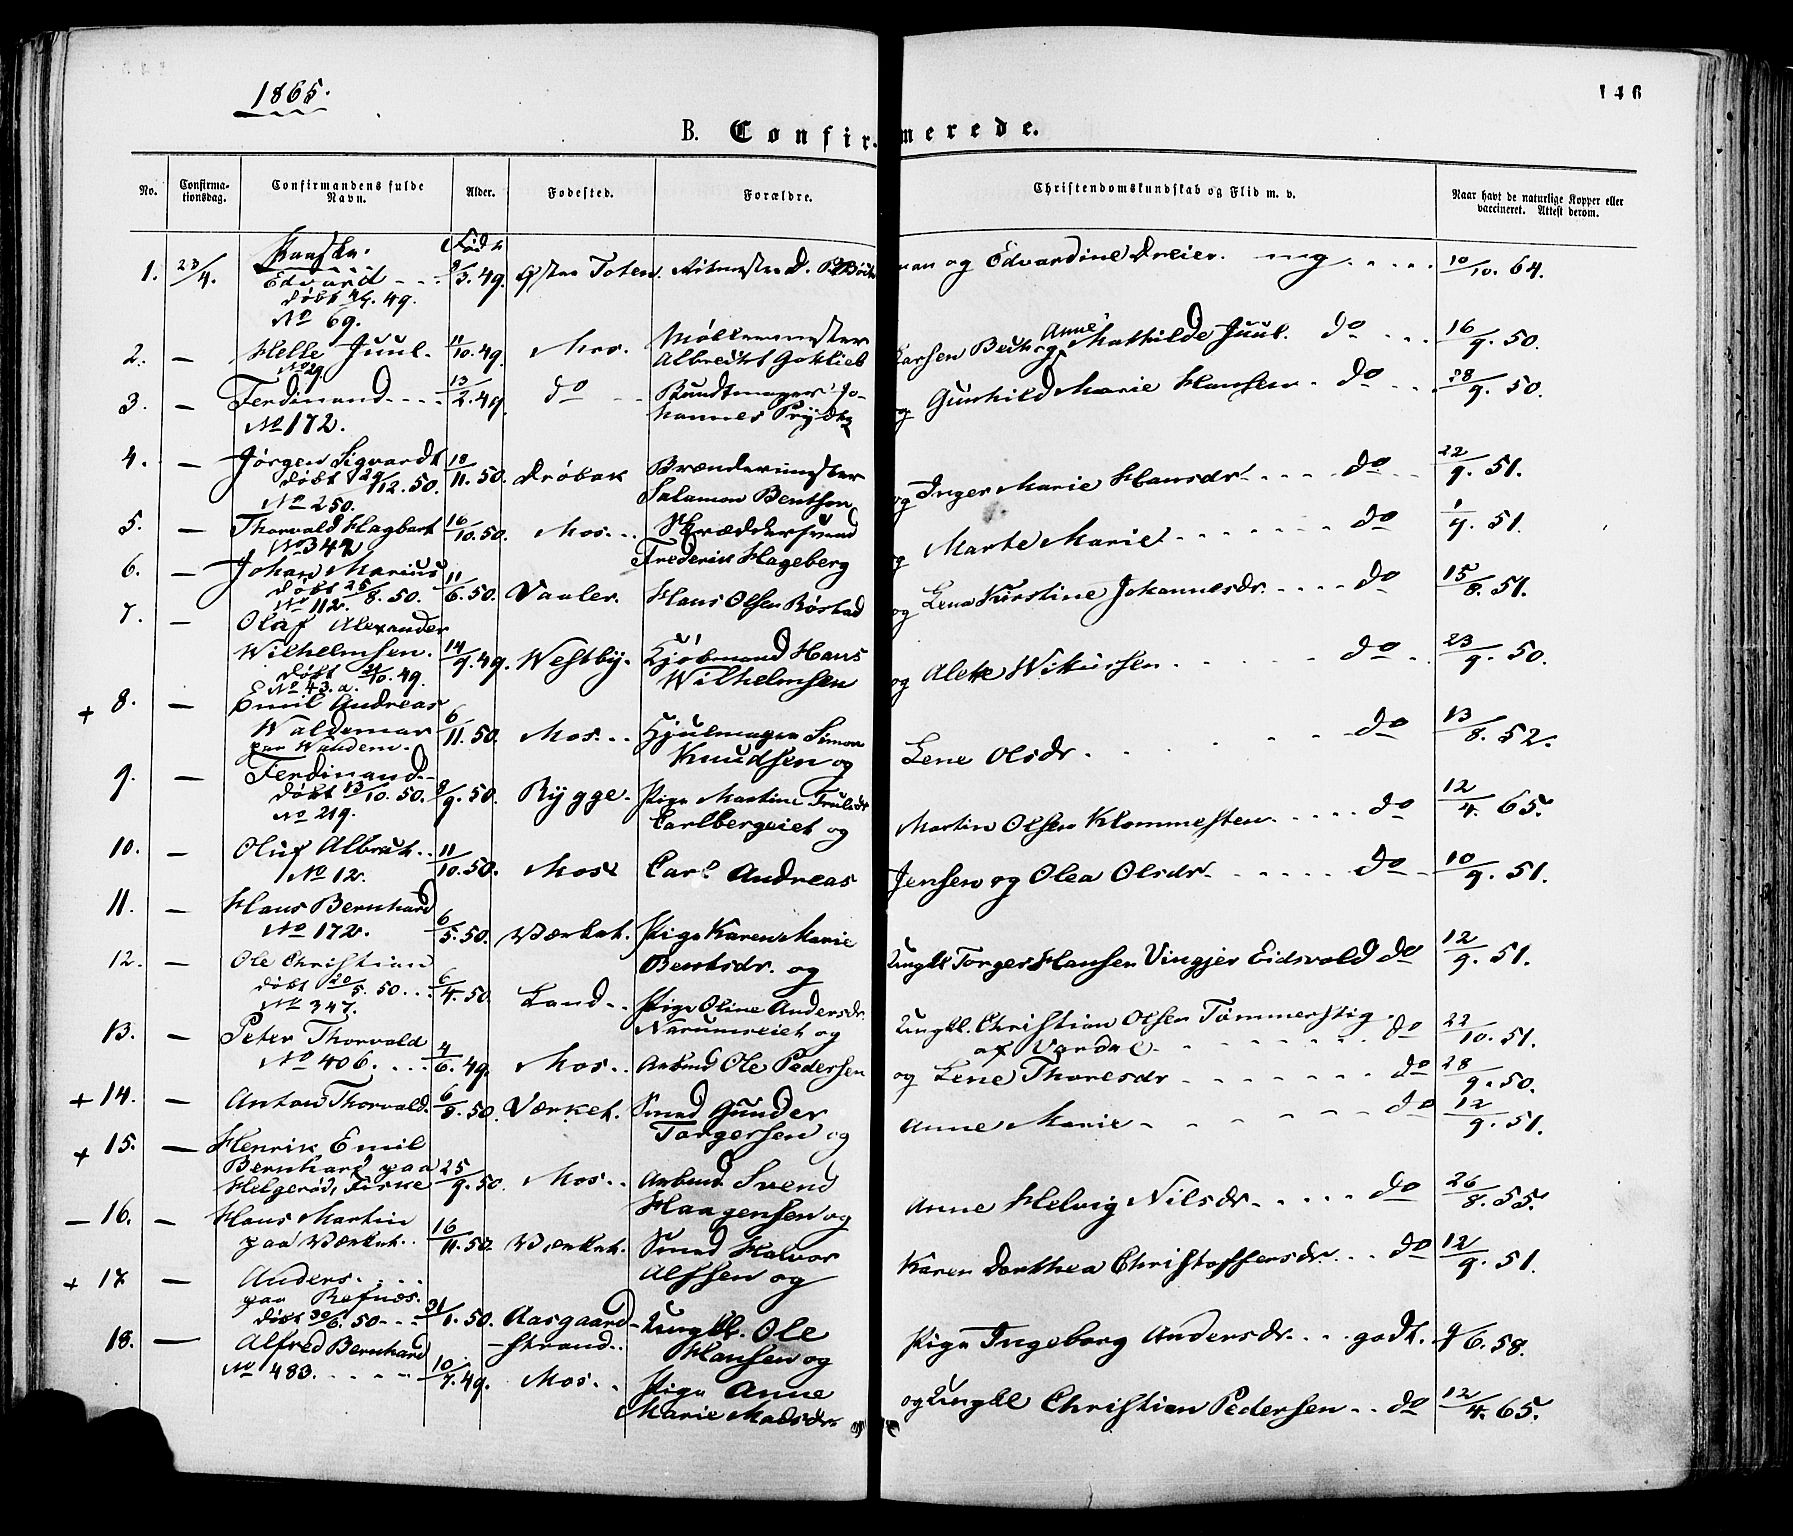 1865.
146
B. Confirmerede.
No.
Confirma-
tionsdag.
Confirmandens fulde
Navn.
Alder.
Fødested.
Forældre.
Christendomskundskab og Flid m. v.
Naar havt de naturlige Kopper eller
vaccineret. Attest derom.
1. 23/4. Edvard - - 3. 49. Østre Toten. og Edvardine Dreier. mg. . . . . 10/10. 64.
døbt 49.
No 69.
2. — Helle Juul. 11/10. 49. Mos. Møllermester Larsen Beck og Anne Mathilde Juul. do . . . 16/9. 50.
No 29 Albrecht Gotlieb
3. — Ferdinand - - - - 13/2. 49. do - - Bundtmager Jo- og Gunhild Marie Hansen. do . . 28/9. 50.
No 172. hannes
4. — Jørgen Sigvardt 18/11. 50. Drøbak Brændermester og Inger Marie Hansdr. - - - - do - - 22/9. 51.
døbt 29/12. 50. Salamon Bentsen
No 250.
5. — Thorvald Hagbart 16/10. 50. Mos. . . Skræddersvend og Marte Marie - - - - - - - do 1/9. 51.
No 342 Frederik Hageberg
6. — Johan Marius 11/6. 50. Vaaler. Hans Olsen Røstad og Lena Kirstine Johannesdr. - - - - do 15/8. 51.
døbt 25/8. 50.
No 112.
7. — Olaf Alexander
Wilhelmsen. 14/9. 49. Westby. Kjøbmand Hans og Alette - - - - do . 23/9. 50.
døbt 21/10. 49. Wilhelmsen
No 43. a.
+ 8. — Emil Andreas
Waldemar 6/11. 50. Mos. . . Hjulmager Simon Lene Olsdr. - - - - do 13/8. 52.
paa Knudsen og
9. — Ferdinand - 50. Rygge. Pige Martine Trulsdr Martin Olsen Klommesten. . . . . do 12/4. 65.
døbt 13/10. 50. Carlbergeiet og
No 219.
10. — Oluf Albert. . 11/10. 50. Mos Carl Andreas Jensen og Olea Olsdr. - - - - - do - 10/9. 51.
No 12.
11. — Hans Bernhard 6/5. 50. Værket. Pige Karen Marie Ungkl Torger Hansen Vingjer Eidsvold do 12/9. 51.
No 172. Bentsdr. og
12. — Ole Christian 6/4. 50. Land - - Pige Oline Andersdr. Ungkl. Christian Olsen Tømmerstig
døbt 20/5. 50. . . og af Vardal - - - - do 22/10. 51.
No 347.
13. — Peter Thorvald
No 406. . . . 4/6. 49. Mos. . Arbmd Ole Pedersen og Lene Thoresdr - - - - - - do 28/9. 50.
+ 14. — Anton Thorvald. 6/8. 50. Værket. Smed Gunder Anne Marie - - - - - do 12/9. 51.
Torgersen og
+ 15. — Henrik Emil
Bernhard paa 25/9. 50. Mos. . . Arbmd Svend Anne Helvig Nilsdr. - - - - do 26/8. 55.
Helgerød, Haagensen og
— 16. — Hans Martin 16/11. 50. Værket. Smed Halvor Karen Dorthea Christoffersdr. . . do 12/9. 51.
paa Værket. . Alfsen og
+ 17 — Anders. . . .
paa Refnæs.
døbt 30/6. 50 - - - 31/1. 50. Aasgaard- Ungkl. Ole Pige Ingeborg Andersdr. . . godt. 9/6. 58.
strand. . Hansen og
18. — Alfred Bernhard 10/7. 49. Mos. . Pige Anne og Ungkl Christian Pedersen . . do 12/4. 65.
No 483. - - - - - Marie Madsdr